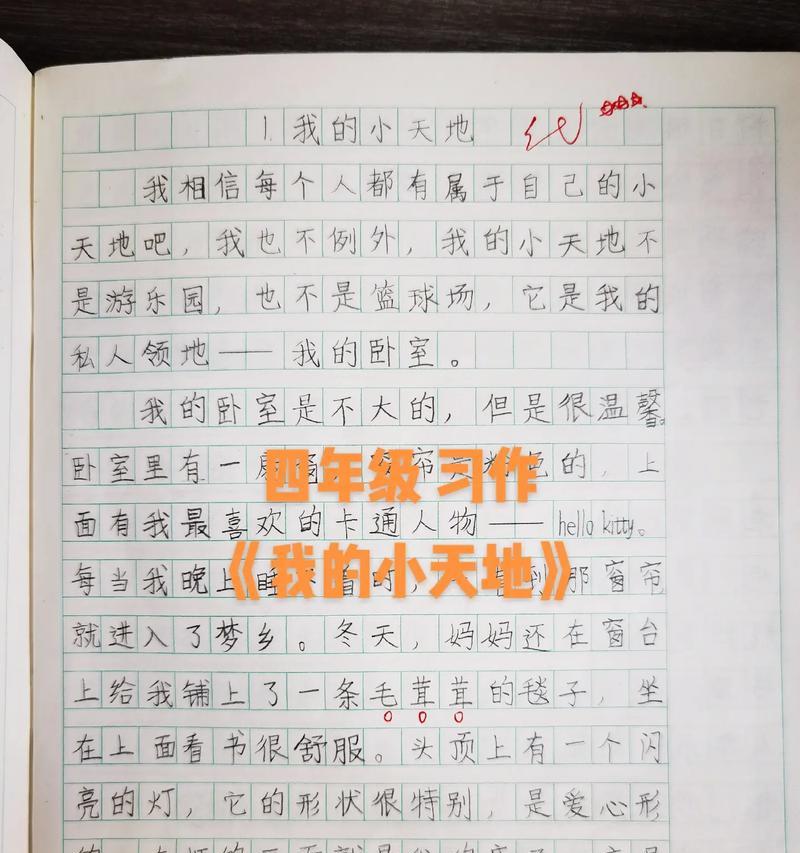 1.我的小天地 优
我相信每个人都有属于自己的小
天地吧，我也不例外，我的小天地不
是游乐园，也不是篮球场，它是我的
私人领地——我的卧室。
我的卧室是不大的，但是很温馨。
卧室里有一扇窗，窗帘是粉色的，上
四年级 习作
面有我最喜欢的卡通人物——hello kitty。
每当我晚上睡不着时，到那窗帘
《我的小天地》
就进入了梦乡。冬天，妈妈还在窗台
上给我铺上了一条毛茸茸的毯子，坐
在上面看书很舒服。头顶上有一个闪
亮的灯，它的形状很特别，是爱心形